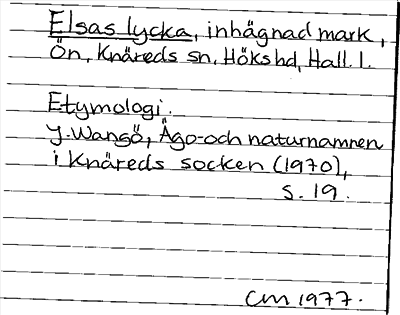 Elsas lycka, inhägnad mark,
Ön, Knäreds sn, Höks hd, Hall. l.
Etymologi.
J. Wangö, Ägo- och naturnamnen
i Knäreds socken (1970),
s. 19.
CM 1977.